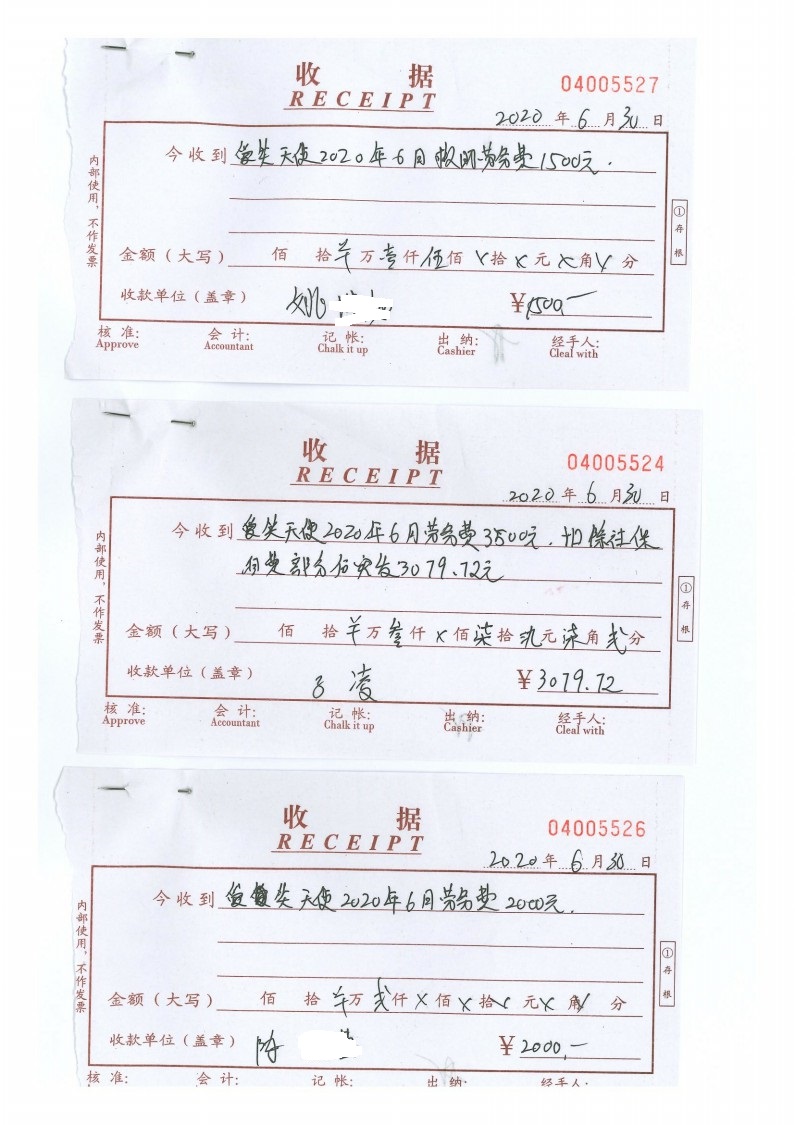 收 据
04005527
RECEIPT
2020 年 6 月 30 日
今收到 爱笑天使2020年6月 劳务费1500元.
金额（大写） 佰 拾 羊 万 壹 仟 伍 佰 × 拾 × 元 × 角 × 分
收款单位（盖章） 姚 ¥1500.—
核 准: 会 计: 记 帐: 出 纳: 经手人:
Approve Accountant Chalk it up Cashier Cleal with
内部使用，不作发票
①存根
收 据
04005524
RECEIPT
2020 年 6 月 30 日
今收到 爱笑天使2020年6月劳务费3500元. 扣除社保
自费部分后实发3079.72元
金额（大写） 佰 拾 羊 万 叁 仟 × 佰 柒 拾 玖 元 柒 角 弍 分
收款单位（盖章） 凌 ¥3079.72
核 准: 会 计: 记 帐: 出 纳: 经手人:
Approve Accountant Chalk it up Cashier Cleal with
内部使用，不作发票
①存根
收 据
04005526
RECEIPT
2020 年 6 月 30 日
今收到 爱笑天使2020年6月劳务费2000元.
金额（大写） 佰 拾 羊 万 弍 仟 × 佰 × 拾 × 元 × 角 × 分
收款单位（盖章） 陈 ¥2000.—
核 准: 会 计: 记 帐: 出 纳: 经手人:
内部使用，不作发票
①存根